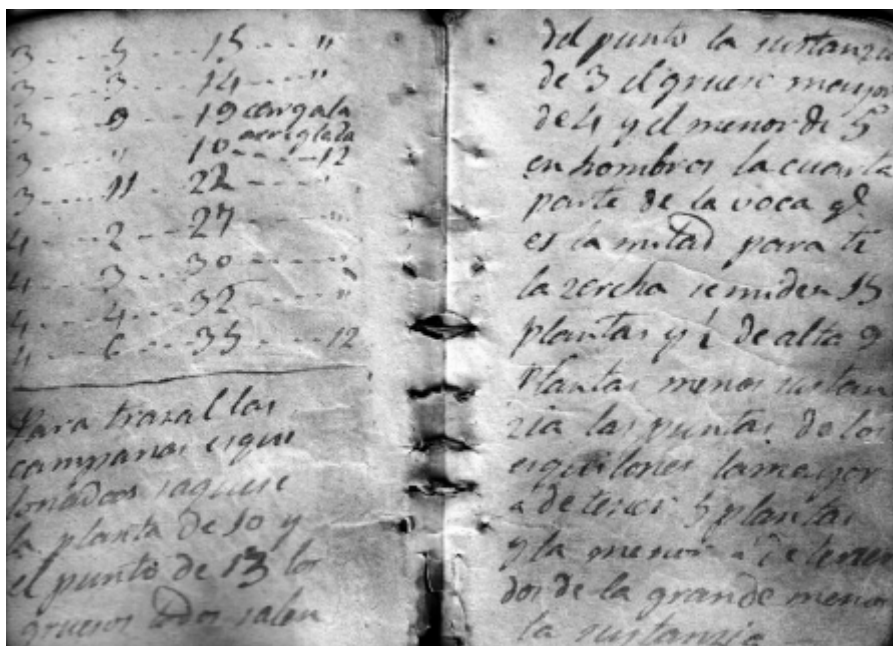 3 --- 5 --- 15 --- "
3 --- 3 --- 14 --- "
3 --- 9 --- 19 cargala
arreglada
3 --- " --- 10 --- 12
3 --- 11 --- 22 --- "
4 --- 2 --- 27 --- "
4 --- 3 --- 30 --- "
4 --- 4 --- 32 --- "
4 --- 6 --- 35 --- 12
Para trasallas
campanas esqui
lonadas saquese
la planta de 10 y
el punto de 13 los
gruesos todos salen
del punto la sustanzia
de 3 el grueso mayor
de 4 y el menor de 5
en hombros la cuarta
parte de la voca q.e
es la mitad para ti
la zercha se miden 15
plantas y de alta 9
Plantas menos sustan
zia las puntas de los
esquilones la mayor
a de tener 5 plantas
y la menor a de tener
dos de la grande menos
la sustanzia